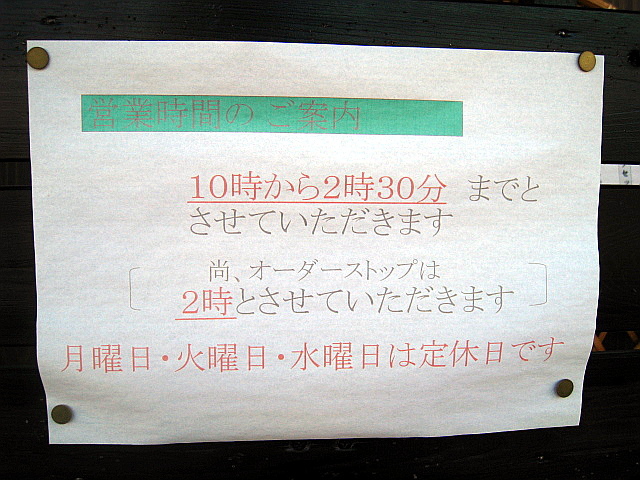 営業時間のご案内
10時から2時30分 までと
させていただきます
尚、オーダーストップは
2時とさせていただきます
月曜日・火曜日・水曜日は定休日です